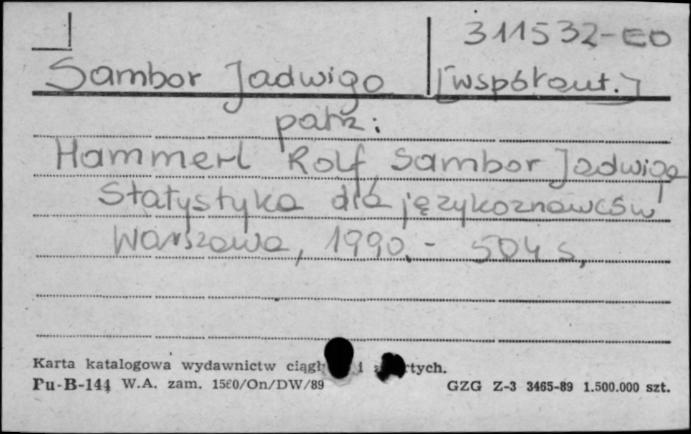 311532-EO
Sambor Jadwiga [współaut.]
patrz:
Hammerl Rolf, Sambor Jadwiga
Statystyka dla językoznawców
Warszawa, 1990.- 504 s.
Karta katalogowa wydawnictw i
Pu-B-144 W.A. zam. 1560/On/DW/89 GZG Z-3 3465-89 1.500.000 szt.